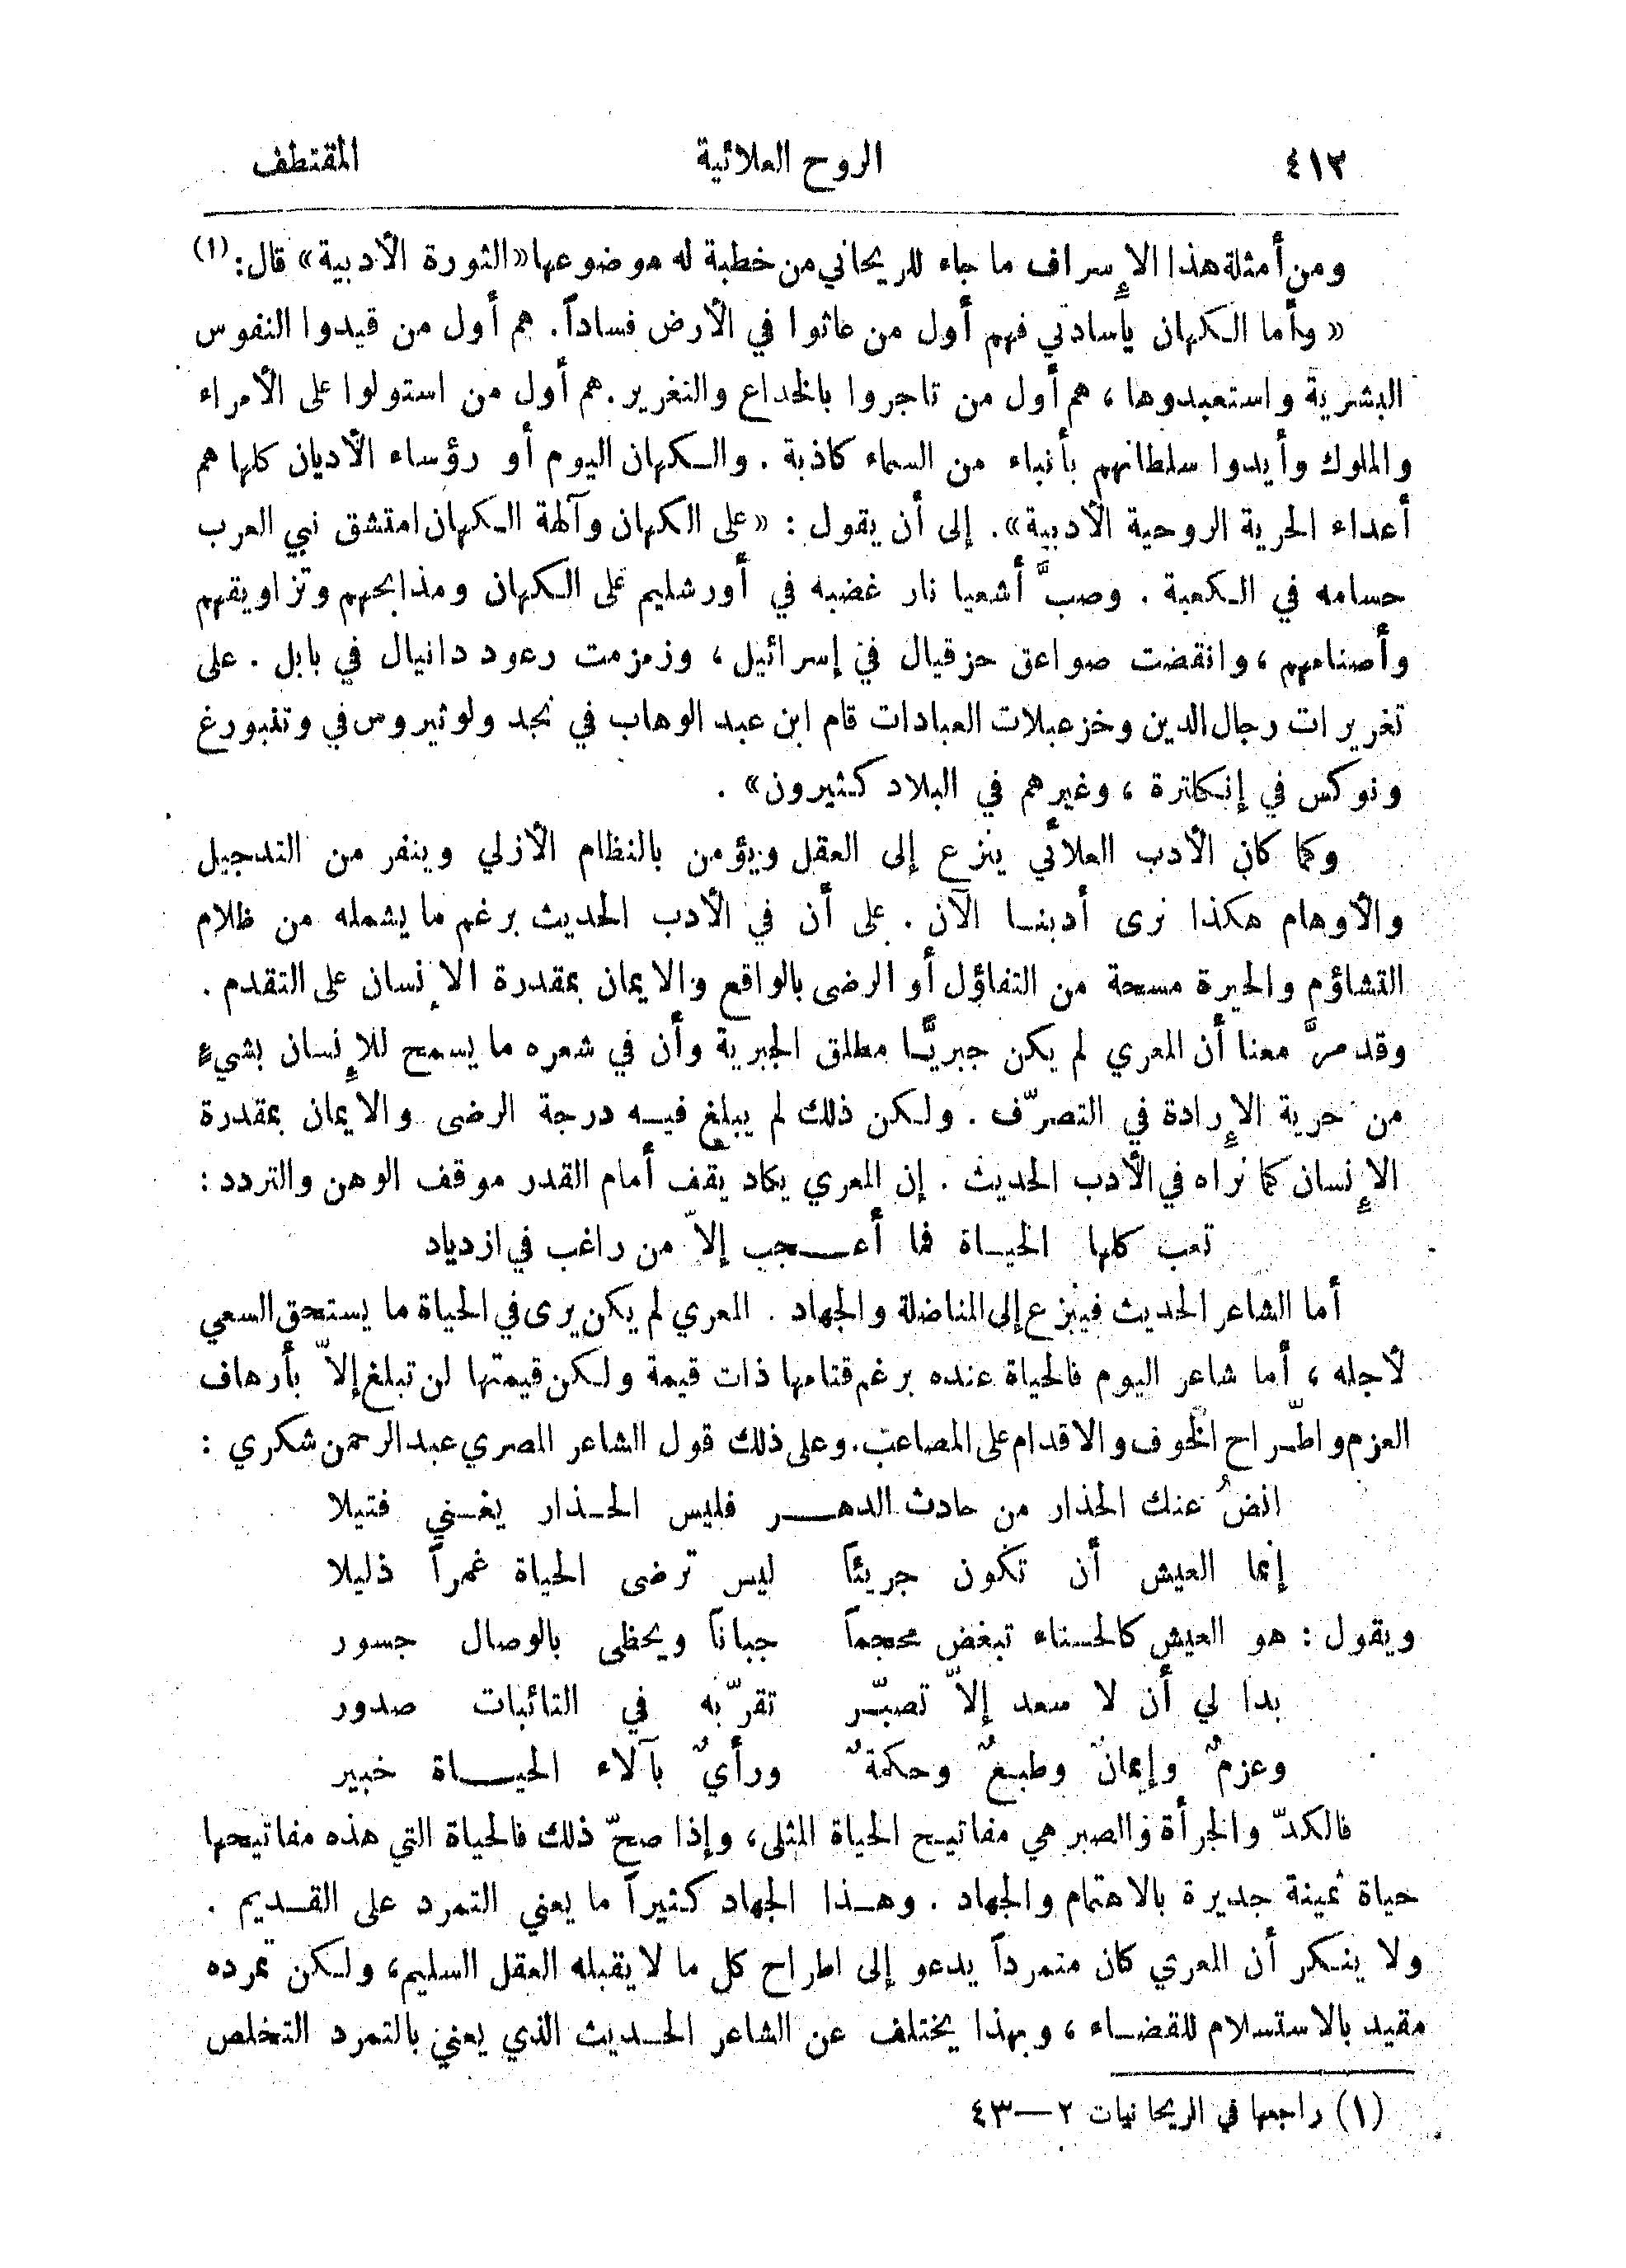 ٤١٢ الروح العلائية المقتطف
ومن أمثلة هذا الإسراف ما جاء للريحاني من خطبة له موضوعها «الثورة الأدبية» قال: (١)
« وأما الكهان ياسادتي فهم أول من عاثوا في الأرض فساداً. هم أول من قيدوا النفوس
البشرية واستعبدوها ، هم أول من تاجروا بالخداع والتغرير. هم أول من استولوا على الأمراء
والملوك وأيدوا سلطانهم بأنباء من السماء كاذبة . والكهان اليوم أو رؤساء الأديان كلها هم
أعداء الحرية الروحية الأدبية». إلى أن يقول : «على الكهان وآلهة الكهان امتشق نبي العرب
حسامه في الكعبة . وصبَّ أشعيا نار غضبه في أورشليم على الكهان ومذابحهم وتزاويقهم
وأصنامهم ، وانقضت صواعق حزقيال في إسرائيل ، وزمزمت رعود دانيال في بابل . على
تغريرات رجال الدين وخزعبلات العبادات قام ابن عبد الوهاب في نجد ولوثيروس في وتنبورغ
ونوكس في إنكلترة ، وغيرهم في البلاد كثيرون» .
وكما كان الأدب العلائي ينزع إلى العقل ويؤمن بالنظام الأزلي وينفر من التدجيل
والأوهام هكذا نرى أدبنا الآن . على أن في الأدب الحديث برغم ما يشمله من ظلام
التشاؤم والحيرة مسحة من التفاؤل أو الرضى بالواقع والايمان بمقدرة الإنسان على التقدم .
وقد مرَّ معنا أن المعري لم يكن جبريًّا مطلق الجبرية وأن في شعره ما يسمح للإنسان بشيءٍ
من حرية الإرادة في التصرّف . ولكن ذلك لم يبلغ فيه درجة الرضى والايمان بمقدرة
الإنسان كما نراه في الأدب الحديث . إن المعري يكاد يقف أمام القدر موقف الوهن والتردد :
تعب كلها الحياة فما أعجب إلاّ من راغب في ازدياد
أما الشاعر الحديث فينزع إلى المناضلة والجهاد . المعري لم يكن يرى في الحياة ما يستحق السعي
لأجله ، أما شاعر اليوم فالحياة عنده برغم قتامها ذات قيمة ولكن قيمتها لن تبلغ إلاّ بأرهاف
العزم واطّراح الخوف والاقدام على المصاعب. وعلى ذلك قول الشاعر المصري عبد الرحمن شكري :
انضُ عنك الحذار من حادث الدهر فليس الحذار يغني فتيلا
إنما العيش أن تكون جريئاً ليس ترضى الحياة غمراً ذليلا
ويقول : هو العيش كالحسناء تبغض محجماً جباناً ويحظى بالوصال جسور
بدا لي أن لا سعد إلاّ تصبّر تقرّبه في النائبات صدور
وعزمٌ وإيمانٌ وطبعٌ وحكمةٌ ورأيٌ بآلاء الحياة خبير
فالكدّ والجرأة والصبر هي مفاتيح الحياة المثلى، وإذا صحّ ذلك فالحياة التي هذه مفاتيحها
حياة ثمينة جديرة بالاهتمام والجهاد . وهذا الجهاد كثيراً ما يعني التمرد على القديم .
ولا ينكر أن المعري كان متمرداً يدعو إلى اطراح كل ما لا يقبله العقل السليم، ولكن تمرده
مقيد بالاستسلام للقضاء ، وبهذا يختلف عن الشاعر الحديث الذي يعني بالتمرد التخلص
(١) راجعها في الريحانيات ٢—٤٣